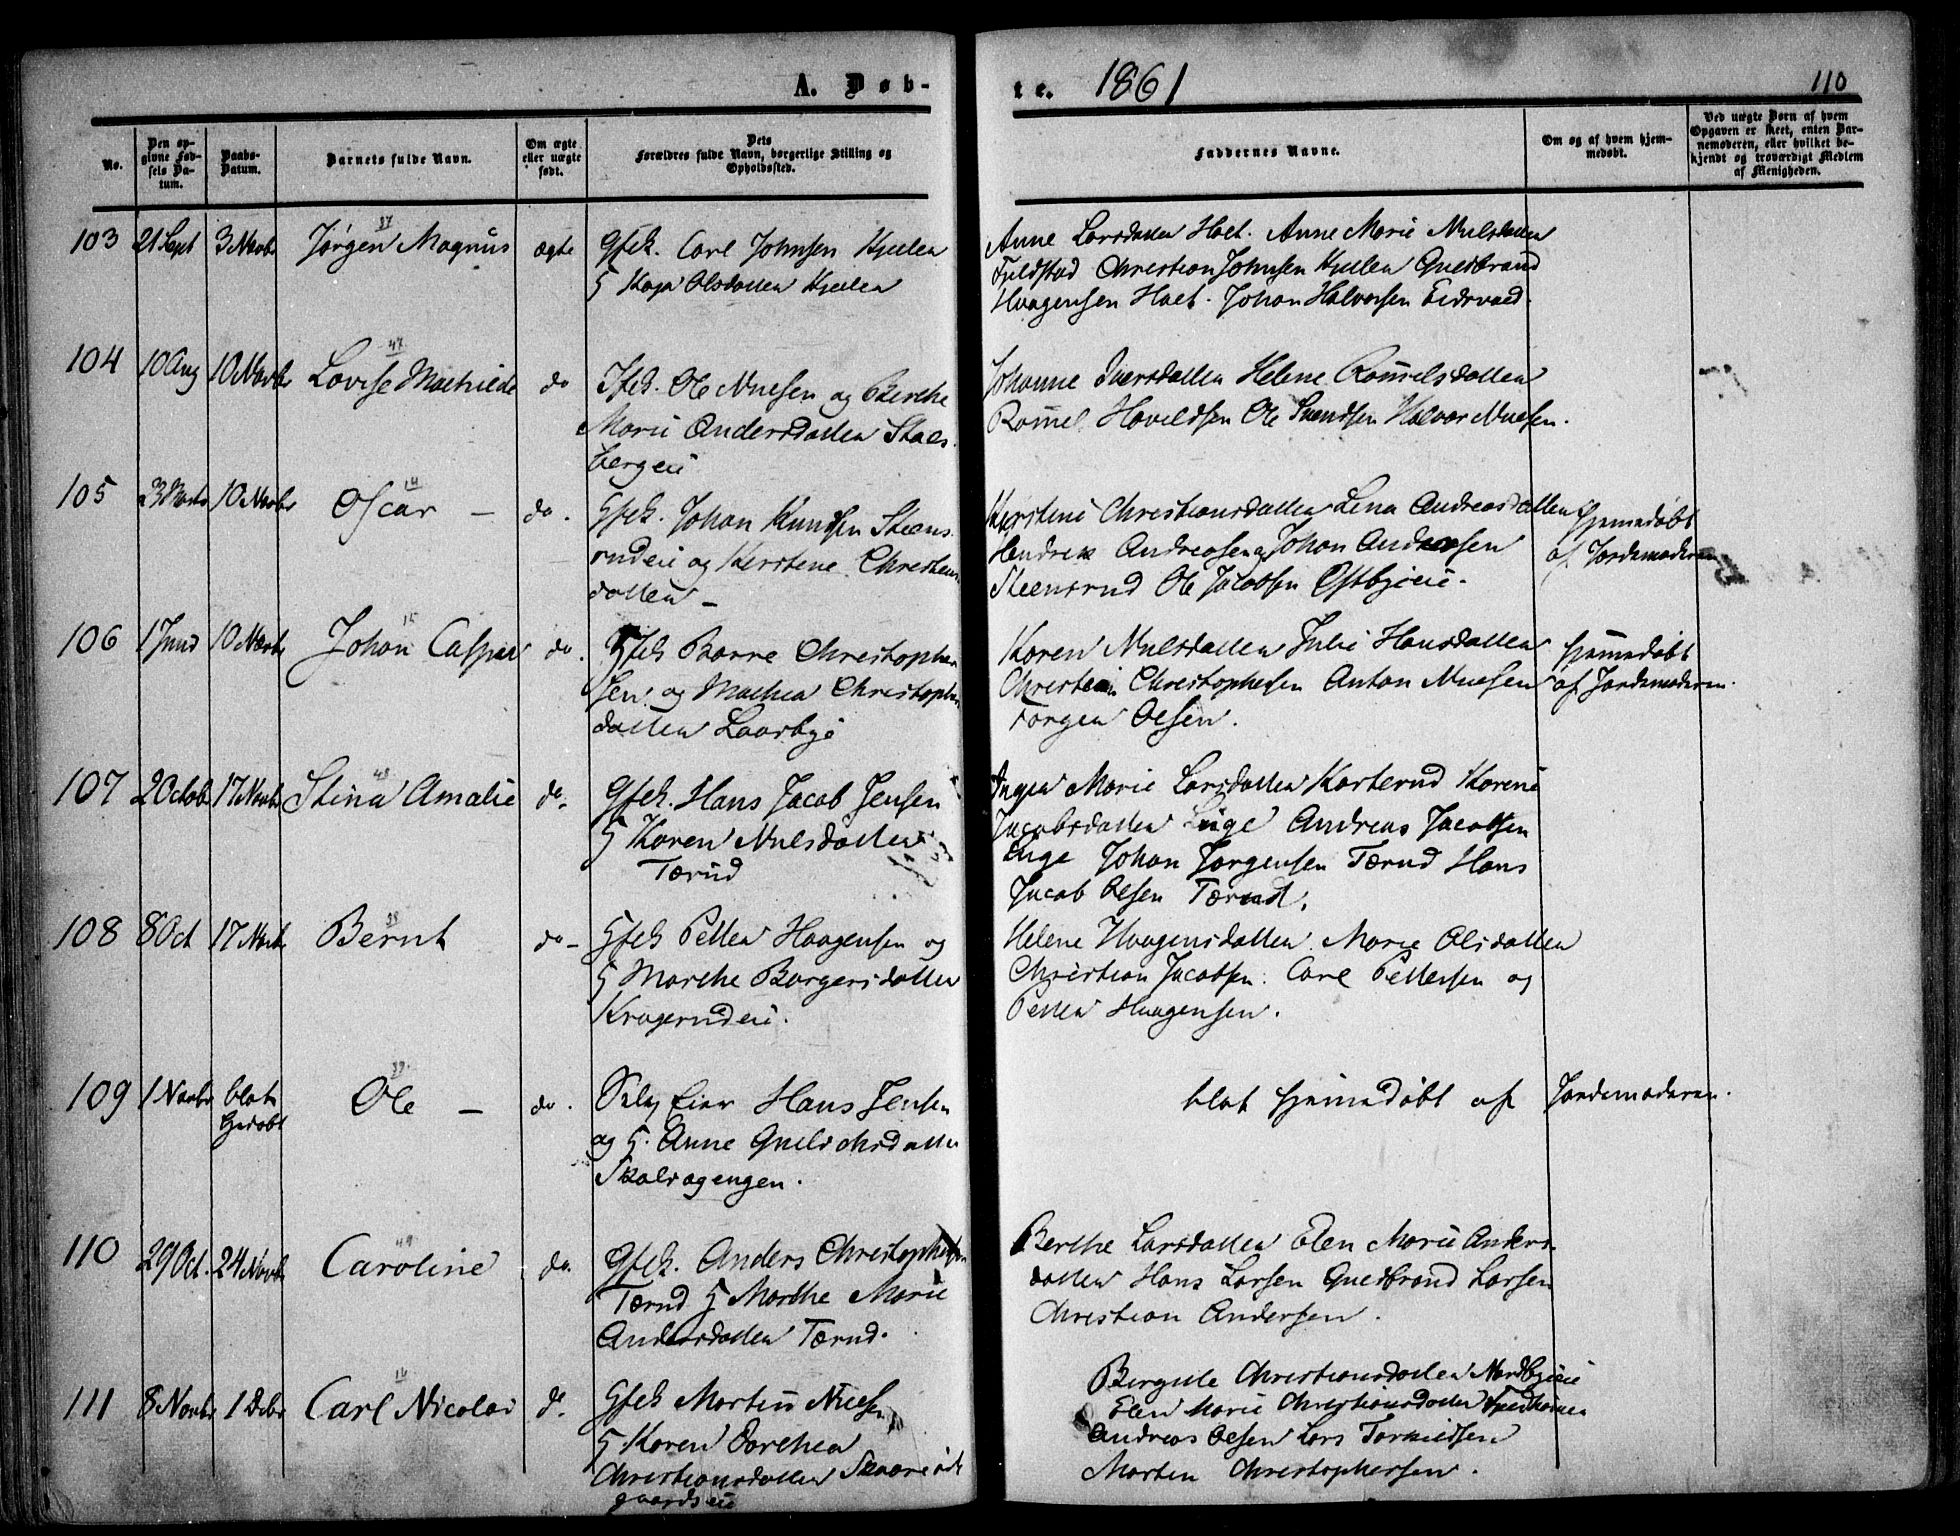 A. Døb-
te. 1861
110
No.
Den opgivne Fødsels Datum.
Daabs-Datum.
Barnets fulde Navn.
Om ægte eller uægte født.
Dets Forældres fulde Navn, borgerlige Stilling og Opholdssted.
Faddernes Navne.
Om og af hvem hjemmedøbt.
Ved uægte Børn af hvem Opgaven er skeet, enten Barnemoderen, eller hvilket bekjendt og troværdigt Medlem af Menigheden.
103 21 Sept 3 Novbr Jørgen Magnus ægte Gfek. Carl Johnsen Kjelen
37
Kaja Olsdatter Kjelen
Anne Larsdatter Holt. Anne Marie Nilsdatter
Christian Johnsen Kjelen Gulbrand
Haagensen Holt. Johan Halvorsen Eidsvold.
104 10 Aug 10 Novbr Lovise Mathilde do
47
Ole Nielsen og Berthe
Marie Andersdatter
bergeie
Johanne Iversdatter Helene Rommelsdatter
Rommel Ole Svendsen Halvor Nielsen.
105 10 Novbr Oscar — do. Gfek. Johan Knudsen Steens
14
rudeie og Kirstene Christians
datter —
Kirstine Christiansdatter Lina Andreasdatter
Hendrik Andreasen og Johan Andreasen
Steensrud Ole Jacobsen Østbyeie.
hjemmedøbt
af Jordemoderen
106 1 Juni 10 Novbr Johan Casper do. Gfek Borre Christopher
15
sen og Mathea Christophers
datter Laarbye
Karen Nilsdatter Julie Hansdatter
Christian Christophersen Anton Nielsen
Jørgen Olsen.
hjemmedøbt
af Jordemoderen.
107 2 Octob 17 Novbr Stina Amalie do. Gfek. Hans Jacob Jensen
48
Karen Nilsdatter
Tærud
Inger Marie Larsdatter Korterud Karine
Jacobsdatter Linge Andreas Jacobsen
Linge Johan Jørgensen Tærud Hans
Jacob Olsen Tærud.
108 8 Oct 17 Novbr Bernt do — Gfek Petter Haagensen og
38
Marthe Borgersdatter
Kragerudeie.
Helene Haagensdatter Marie Olsdatter
Christian Jacobsen. Carl Pettersen og
Petter Haagensen.
109 1 Novbr blot Ole — do. Selv Eier Hans Jensen
39
Hjdøbt
og Anne
Skolvogengen.
blot hjemmedøbt af Jordemoderen.
110 29 Oct. 24 Novbr Caroline do. Gfek. Anders Christophersen
49
Tærud Marthe Marie
Andersdatter Tærud.
Berthe Larsdatter Elen Marie Anders
datter Hans Larsen Gulbrand Larsen
Christian Andersen.
111 8 Novbr 1 Debr Carl Nicolai do. Gfek Morten Nielsen
Karen Dorthea
Christiansdatter
gaardseie
Bergitte Christiansdatter Nordbyeie
Elen Marie Christiansdatter
Andreas Olsen Lars Torkildsen
Morten Christophersen.